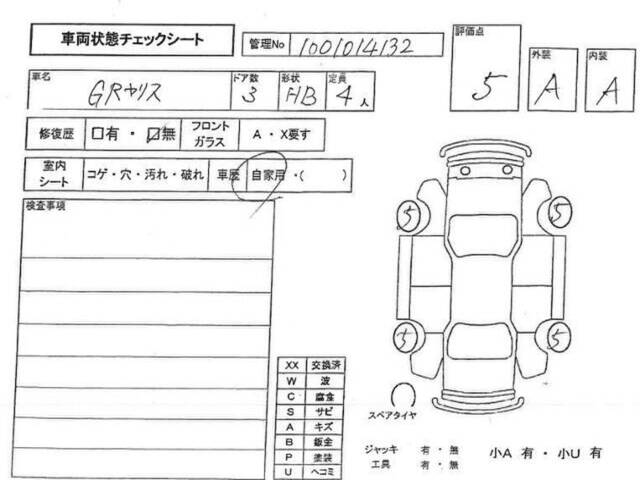 車両状態チェックシート
管理No 1001014132
評価点 5
外装 A
内装 A
車名 GRヤリス
ドア数 3
形状 HB
定員 4人
修復歴 □有・☑無
フロントガラス A・X要す
室内シート コゲ・穴・汚れ・破れ
車歴 自家用・( )
検査事項
5 5
5 5
XX 交換済
W 波
C 腐食
S サビ
A キズ
B 鈑金
P 塗装
U ヘコミ
スペアタイヤ
ジャッキ 有・無
工具 有・無
小A 有・小U 有